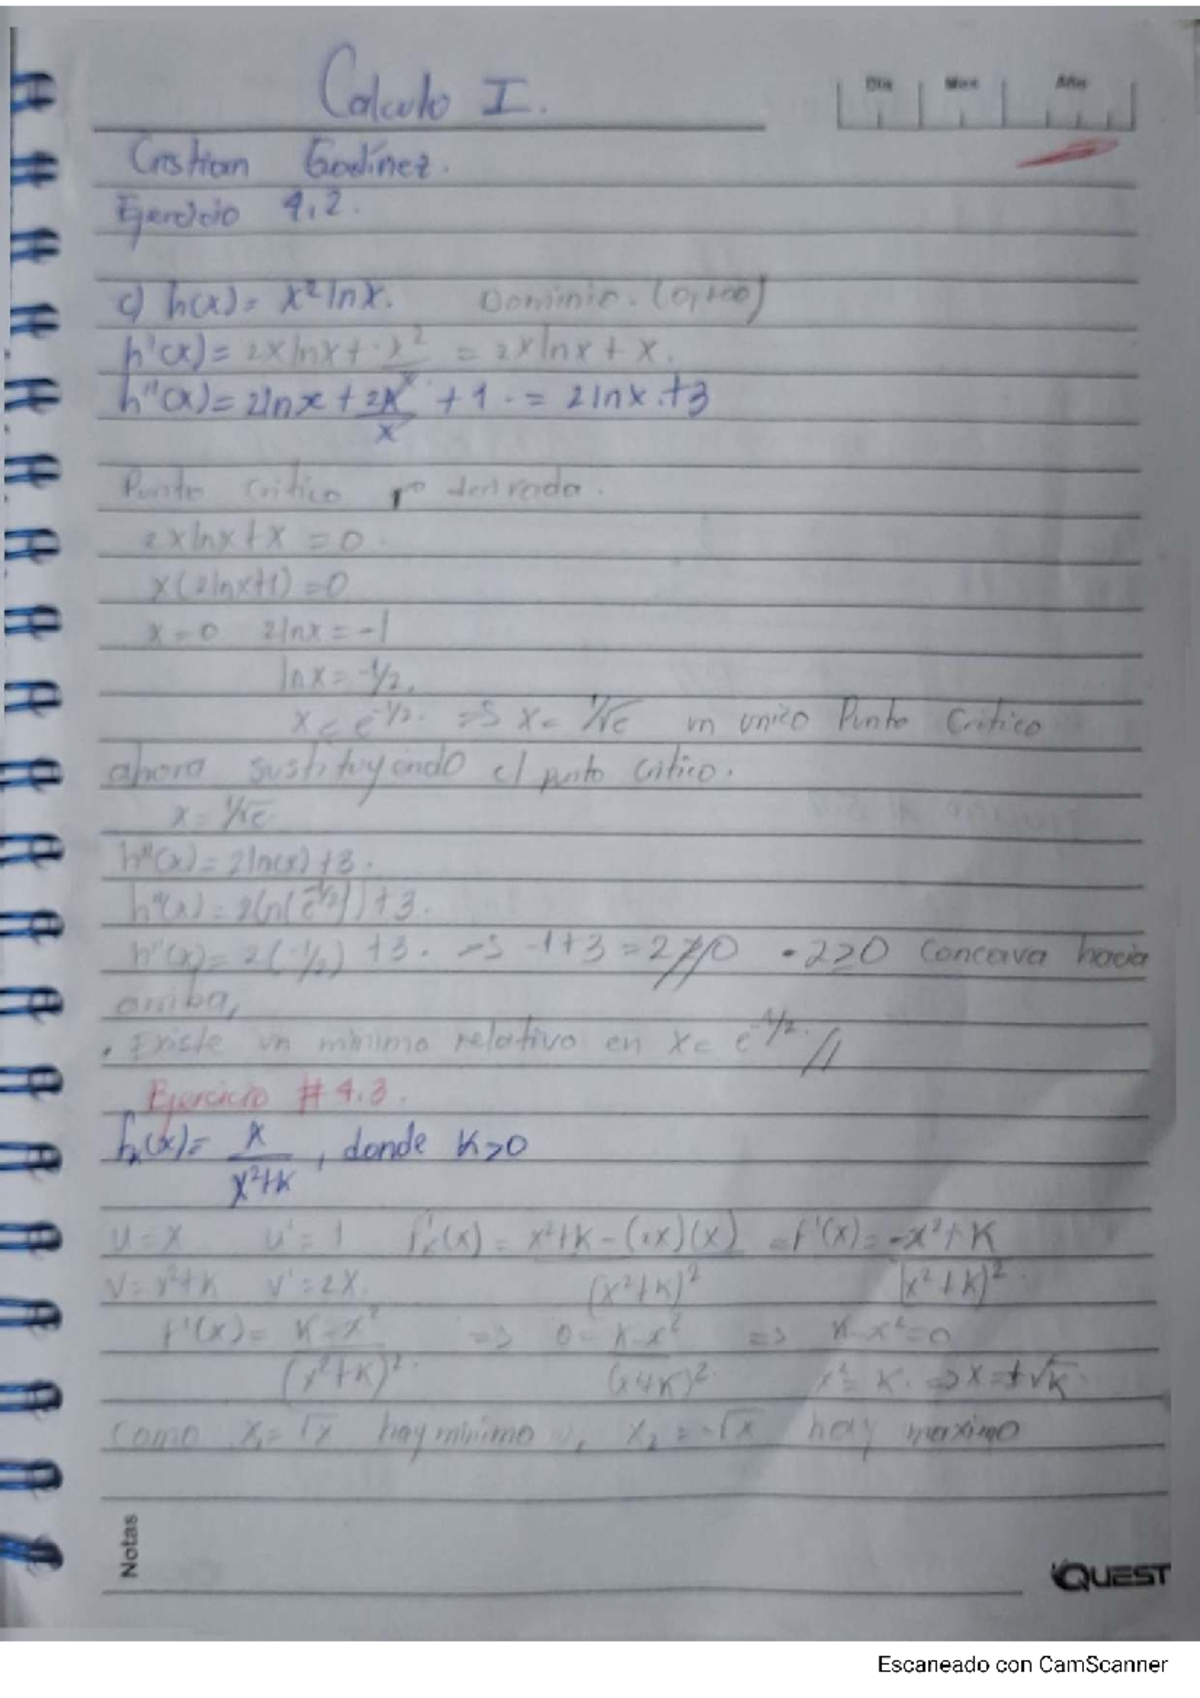 Calculo I.
Dia Mes Año
Cristian Godínez.
Ejercicio 4.2.
c) h(x) = x² ln x. Dominio. (0,+∞)
h'(x) = 2x ln x + x²/x = 2x ln x + x.
h''(x) = 2 ln x + 2x/x + 1. = 2 ln x + 3
Punto Critico derivada.
2x ln x + x = 0.
x(2 ln x + 1) = 0
x = 0 2 ln x = -1
ln x = -1/2.
x = e^-1/2. => x = 1/√e un unico Punto Critico
ahora sustituyendo el punto Critico.
x = 1/√e
h''(x) = 2 ln(x) + 3.
h''(x) = 2(ln(e^-1/2)) + 3.
h''(x) = 2(-1/2) + 3. => -1 + 3 = 2 // • 2≥0 Concava hacia
arriba,
. Existe un minimo relativo en x = e^-1/2. //
Ejercicio # 4.3.
f_k(x) = x/(x²+k), donde K>0
u = x u' = 1 f'_k(x) = x²+k-(2x)(x)/(x²+k)² = f'(x) = -x²+K/(x²+k)²
v = x²+k v' = 2x.
f'(x) = K-x²/(x²+k)². => 0 = K-x²/(x+k)² => K-x² = 0
x² = K. => x = ±√K
Como x₁ = √x hay minimo, x₂ = -√x hay maximo
Notas
QUEST
Escaneado con CamScanner